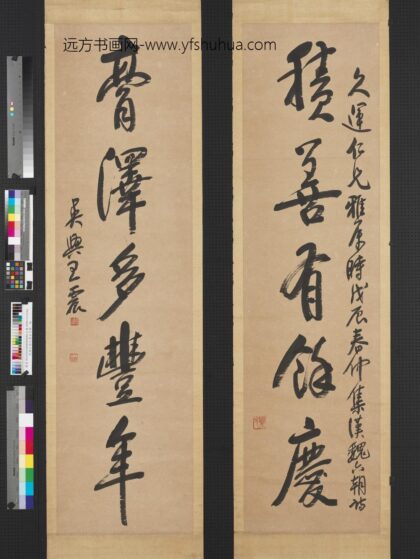 远方书画网-www.yfshuhua.com
久運仁兄雅屬時戊辰春仲集漢魏六朝詩
積善有餘慶
膏澤多豐年
吳興王震